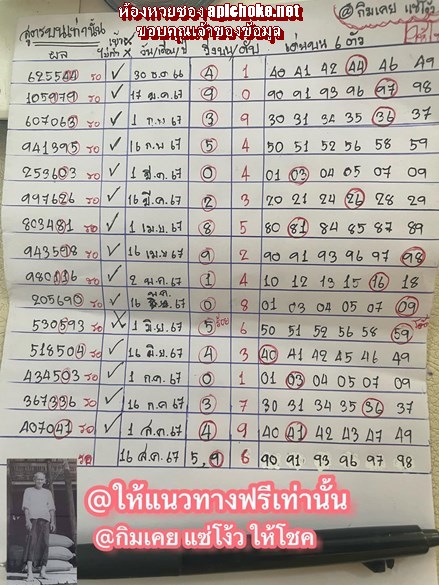 ห้องหวยของ apichoke.net
ขอบคุณเจ้าของข้อมูล
@กิมเคย แซ่โง้ว
สูตรบนเท่านั้น
ผล เข้า✓ ไม่เข้า X วัน/เดือน/ปี วิ่งบน/ดับ เด่นบน 6 ตัว
625544 รอ ✓ 30 ธ.ค 66 4 1 40 41 42 44 46 49
105979 รอ ✓ 17 ม.ค 67 9 0 90 91 93 96 97 98
607063 รอ ✓ 1 ก.พ 67 3 9 30 31 34 35 36 37
941395 รอ ✓ 16 ก.พ 67 5 4 50 51 52 56 58 59
253603 รอ ✓ 1 มี.ค 67 0 4 01 03 04 05 07 09
997626 รอ ✓ 16 มี.ค 67 2 3 20 21 24 26 28 29
803481 รอ ✓ 1 เม.ย 67 8 5 80 81 84 85 87 89
943598 รอ ✓ 16 เม.ย 67 9 2 90 91 93 96 97 98
980116 รอ ✓ 2 พ.ค 67 1 4 10 12 13 15 16 18
205690 รอ ✓ 16 พ.ค 67 0 8 01 03 04 05 07 09
530593 รอ 1 มิ.ย 67 5 6 50 51 52 56 58 59
518504 รอ ✓ 16 มิ.ย 67 4 3 40 41 42 45 46 49
434503 รอ ✓ 1 ก.ค 67 0 1 01 03 04 05 07 09
367336 รอ ✓ 16 ก.ค 67 3 7 30 31 34 35 36 37
407041 รอ ✓ 1 ส.ค 67 4 9 40 41 42 43 47 49
รอ 16 ส.ค 67 5,9 6 90 91 93 96 97 98
@ให้แนวทางฟรีเท่านั้น
@กิมเคย แซ่โง้ว ให้โชค